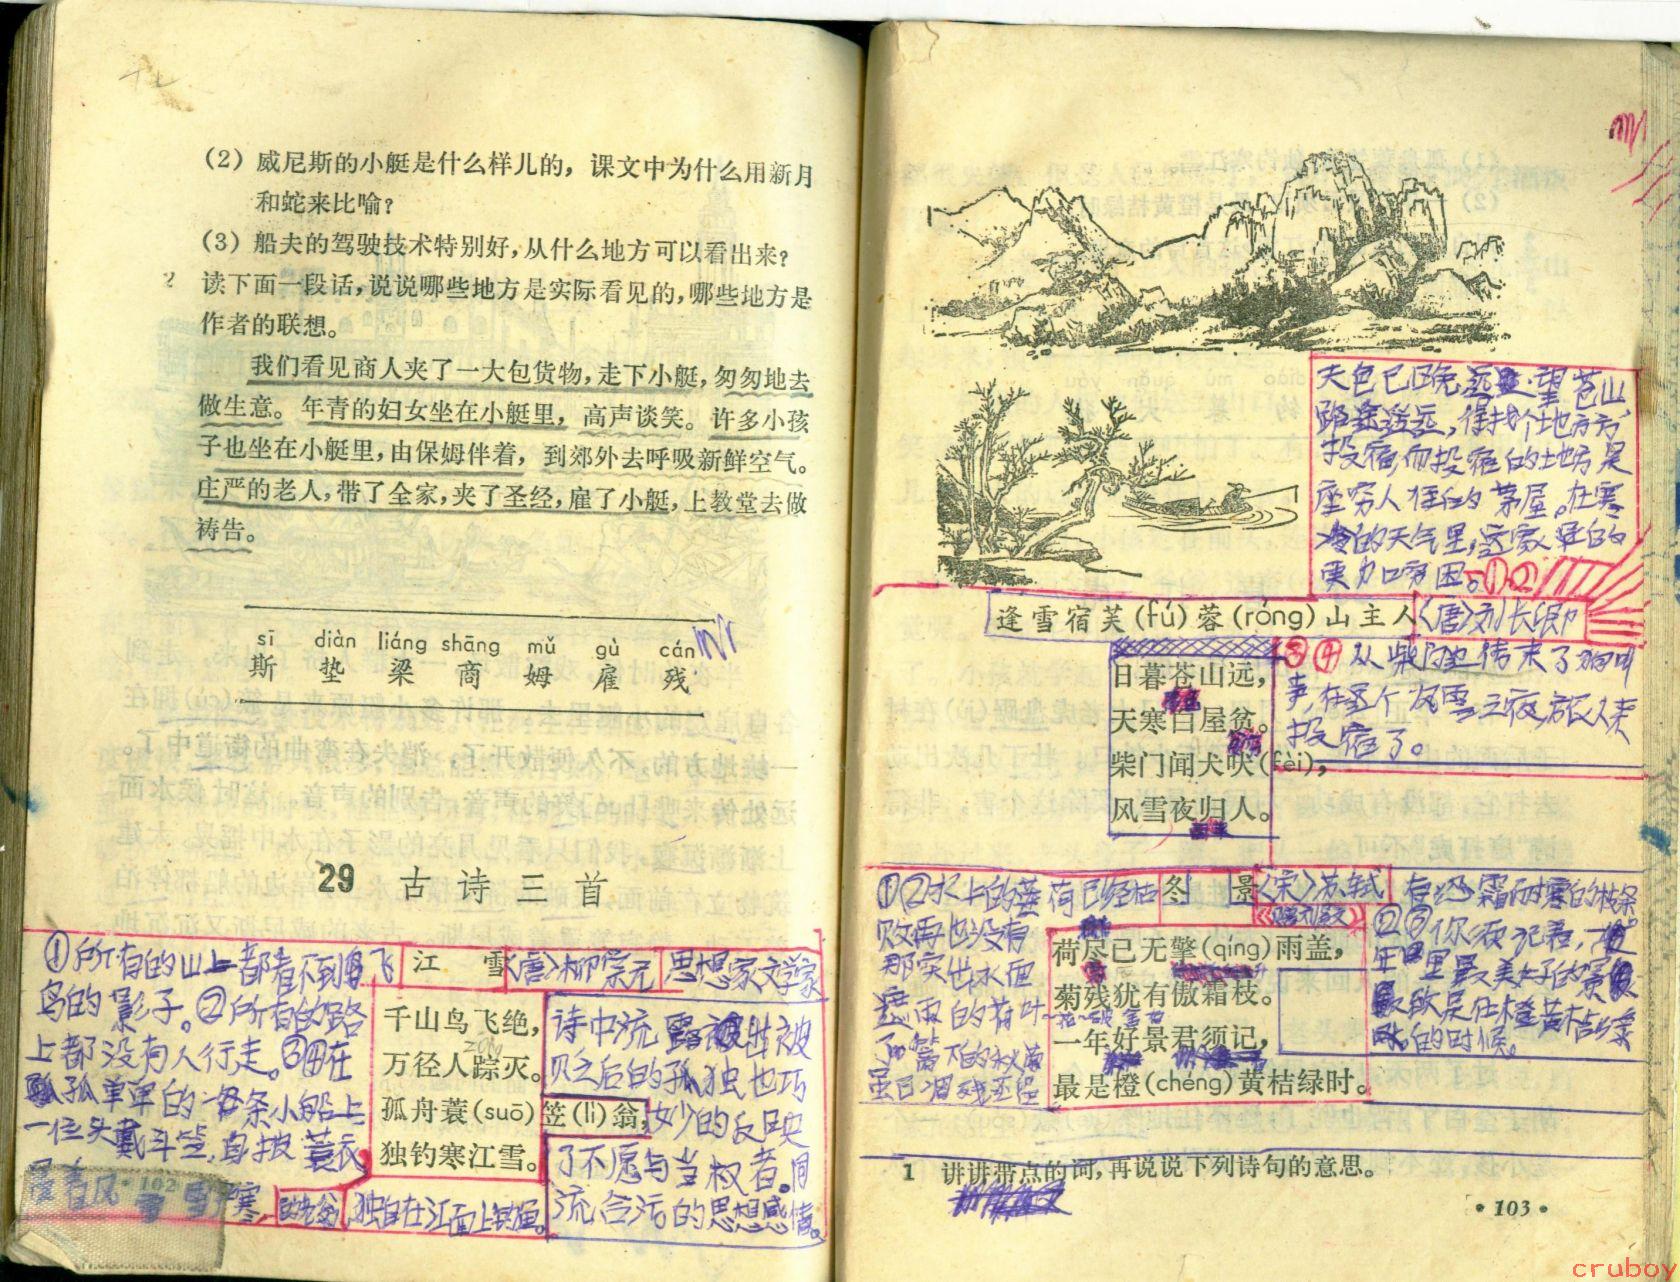 (2) 威尼斯的小艇是什么样儿的，课文中为什么用新月
和蛇来比喻？
(3) 船夫的驾驶技术特别好，从什么地方可以看出来？
2 读下面一段话，说说哪些地方是实际看见的，哪些地方是
作者的联想。
我们看见商人夹了一大包货物，走下小艇，匆匆地去
做生意。年青的妇女坐在小艇里，高声谈笑。许多小孩
子也坐在小艇里，由保姆伴着，到郊外去呼吸新鲜空气。
庄严的老人，带了全家，夹了圣经，雇了小艇，上教堂去做
祷告。
sī diàn liáng shāng mǔ gù cán
斯 垫 梁 商 姆 雇 残
29 古诗三首
江 雪 〈唐〉柳宗元 思想家文学家
千山鸟飞绝，
万径人踪灭。
孤舟蓑(suō)笠(lì)翁，
独钓寒江雪。
①所有的山上都看不到鸟飞
鸟的影子。②所有的路
上都没有人行走。③在
孤孤单单的一条小船上
一位头戴斗笠，身披蓑衣
寒，的老翁，独自在江面上钓鱼。
诗中流露出被
贬之后的孤独也巧
妙的反映
了不愿与当权者同
流合污的思想感情。
102
天色已晚 望苍山
路途遥远，得找个地方
投宿，而投宿的地方是
座穷人住的茅屋。在寒
冷的天气里，这家
更加穷困。①②
逢雪宿芙(fú)蓉(róng)山主人 〈唐〉刘长卿
日暮苍山远，
天寒白屋贫。
柴门闻犬吠(fèi)，
风雪夜归人。
③④从柴门里传来了狗叫
声，在这个风雪之夜，旅人来
投宿了。
冬 景 〈宋〉苏轼
《赠刘景文》
荷尽已无擎(qíng)雨盖，
菊残犹有傲霜枝。
一年好景君须记，
最是橙(chéng)黄桔绿时。
①②水上的莲荷已经枯
败再也没有
那突出水面
遮雨的荷叶
有还 霜耐寒的枝条。
③你须记着，一
年里最美好的景
是在橙黄桔绿
的时候。
1 讲讲带点的词，再说说下列诗句的意思。
·103·
cruboy